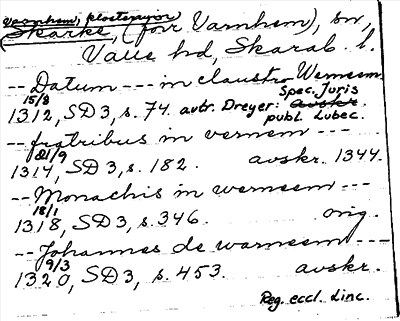 Varnhem, klosterruin
(Skarke, (förr Varnhem), sn,
Valle hd, Skarab. l.
-- Datum --- in claustro Wernem
15/8
1312, SD 3, s. 74. avtr. Dreyer: Spec. Juris
avskr. publ. Lubec.
-- fratribus in vernem ---
21/9
1314, SD 3, s. 182. avskr. 1344.
-- Monachis in werneem ---
18/1
1318, SD 3, s. 346. orig.
-- Johannes de warneem ---
9/3
1320, SD 3, s. 453. avskr.
Reg. eccl. Linc.